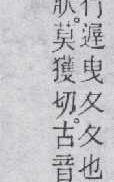 行遟曳夊夊也
狀。莫獲切。古音